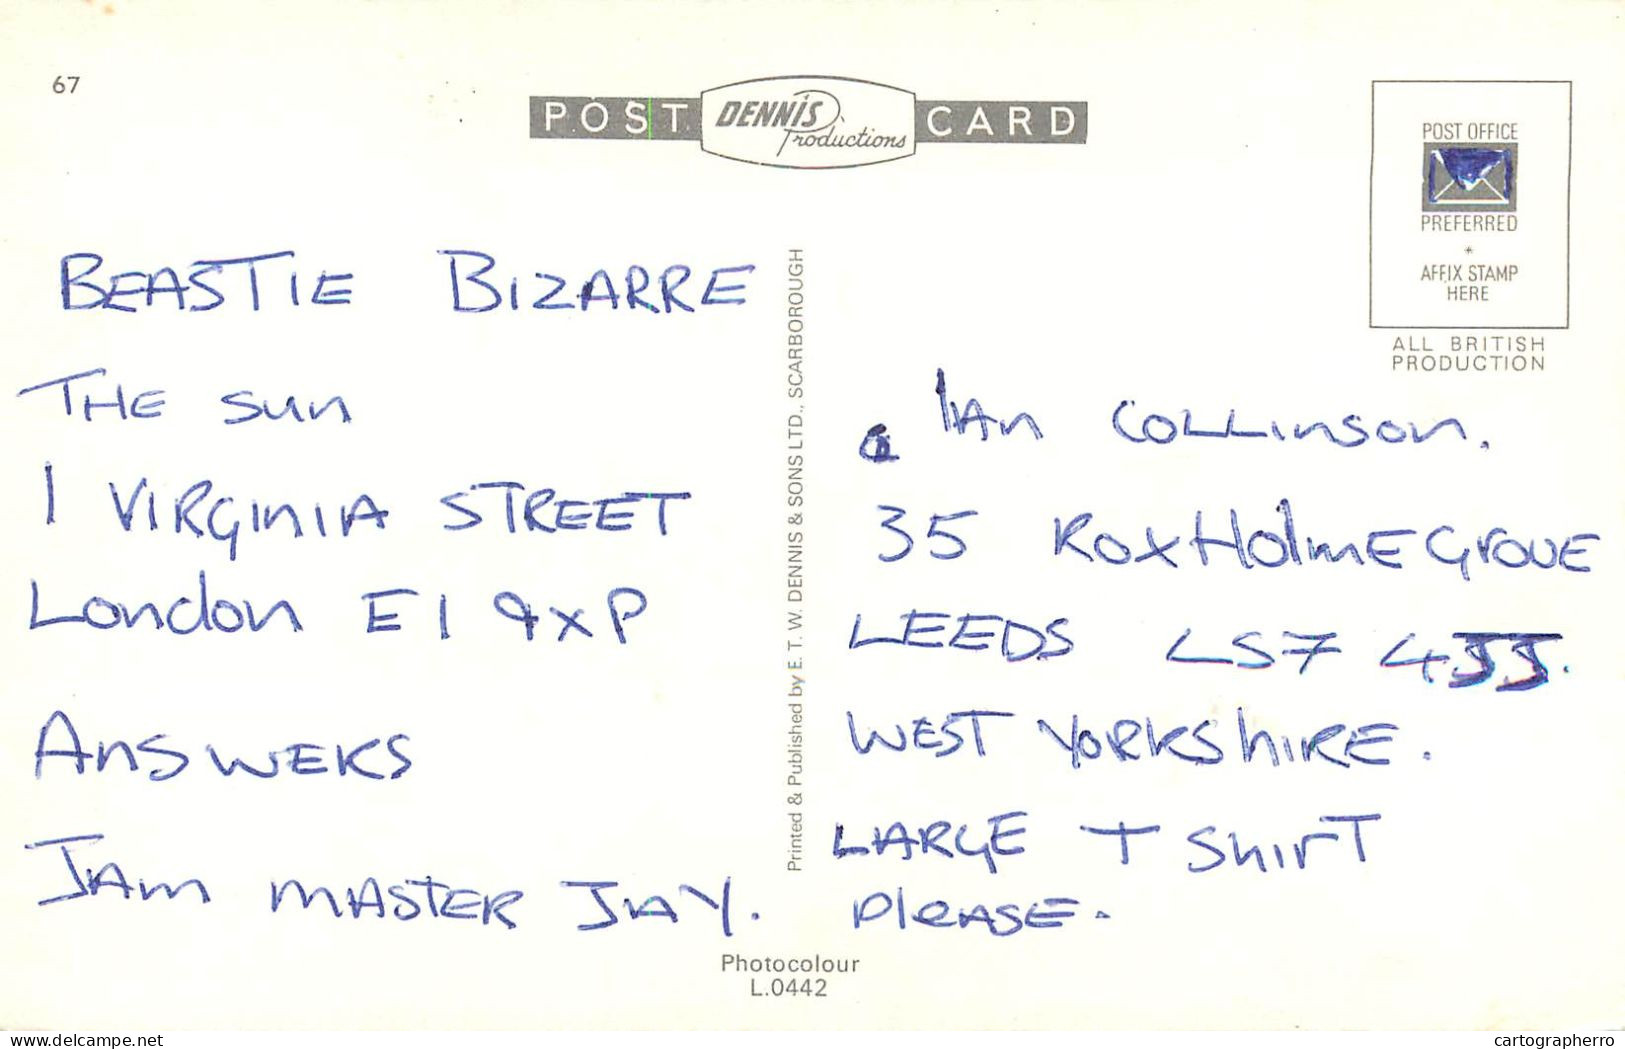 67
POST DENNIS Productions CARD
POST OFFICE
PREFERRED
*
AFFIX STAMP
HERE
ALL BRITISH
PRODUCTION
BEASTIE BIZARRE
THE SUN
1 VIRGINIA STREET
London E1 9XP
ANSWERS
JAM MASTER JAY.
Printed & Published by E. T. W. DENNIS & SONS LTD., SCARBOROUGH
IAN COLLINSON.
35 ROXHOLME GROVE
LEEDS LS7 4JJ.
WEST YORKSHIRE.
LARGE T SHIRT
PLEASE.
Photocolour
L.0442
delcampe.net
cartographerro